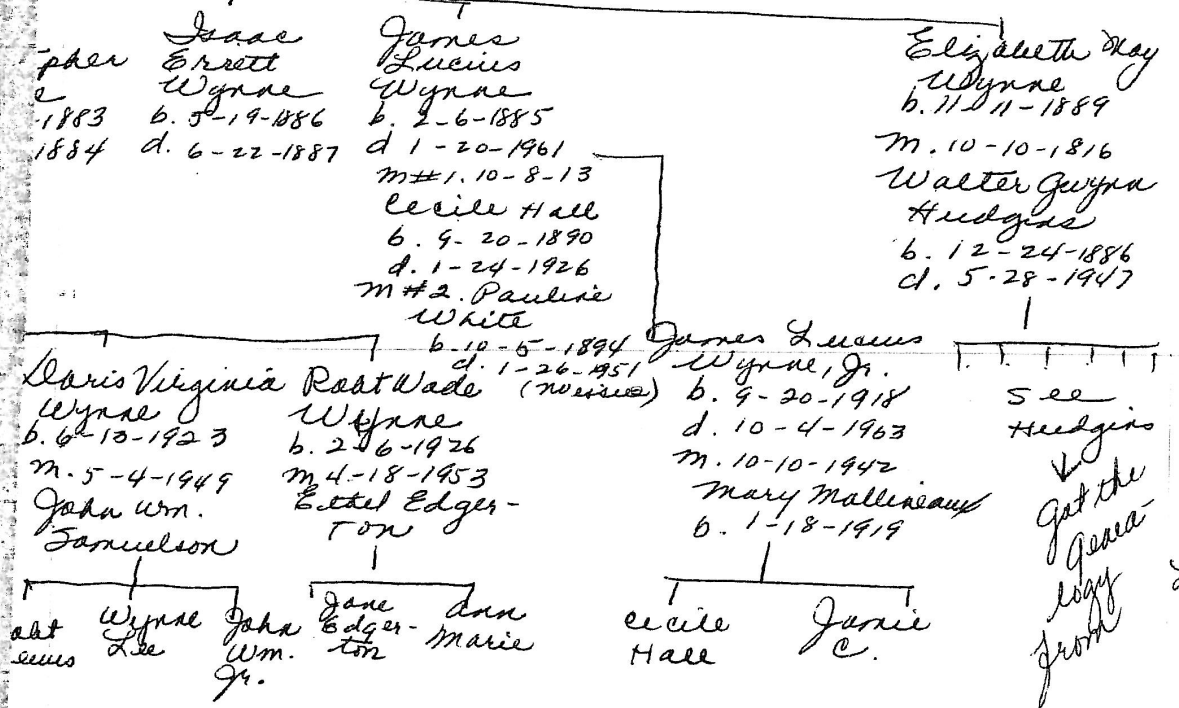 Isaac
Errett
Wynne
b. 5-19-1886
d. 6-22-1887
pher
e
-1883
1884
James
Lucius
Wynne
b. 2-6-1885
d 1-20-1961
m#1. 10-8-13
Cecile Hall
b. 9-20-1890
d. 1-24-1926
m#2. Pauline
White
b. 10-5-1894
d. 1-26-1951
(no issue)
Elizabeth May
Wynne
b. 11-11-1889
m. 10-10-1816
Walter Gwynn
Hudgins
b. 12-24-1886
d. 5-28-1947
Doris Virginia
Wynne
b. 6-13-1923
m. 5-4-1949
John Wm.
Samuelson
Robt Wade
Wynne
b. 2-6-1926
m 4-18-1953
Ethel Edger-
ton
James Lucius
Wynne, Jr.
b. 9-20-1918
d. 10-4-1963
m. 10-10-1942
Mary Mollineaux
b. 1-18-1919
See
Hudgins
got the
genea-
logy
from
Wynne
Lee
John
Wm.
Jr.
Jane
Edger-
ton
Ann
Marie
Cecile
Hall
Jamie
C.